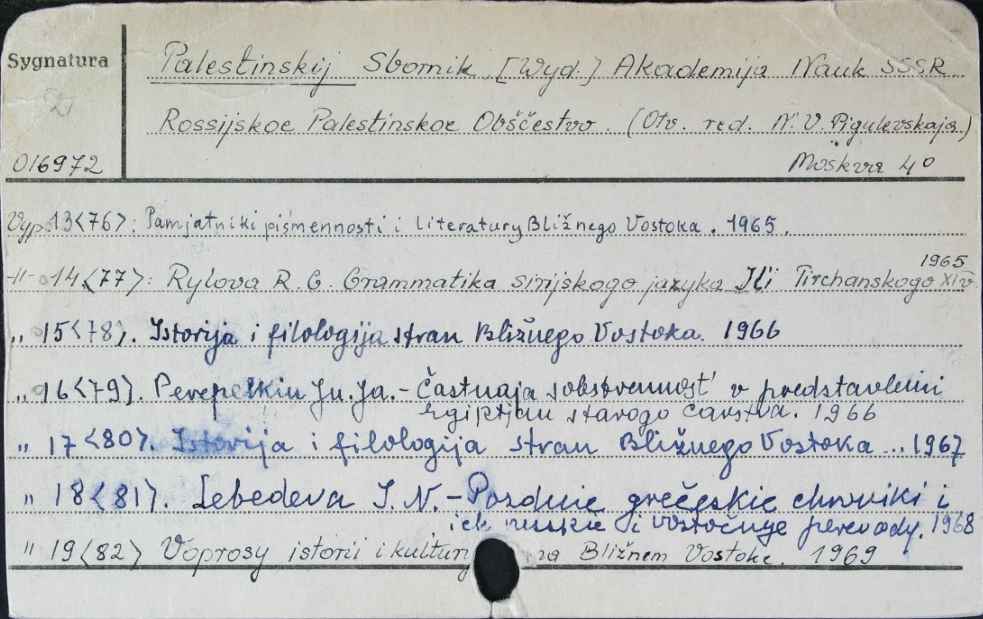 Sygnatura
Palestinskij Sbornik. [Wyd.] Akademija Nauk SSSR
Rossijskoe Palestinskoe Obščestvo. (Otv. red. N. V. Pigulevskaja.)
016972
Moskva 4º
Vyp. 13<76>: Pamjatniki piśmennosti i literatury Bližnego Vostoka. 1965.
1965
-"- 14<77>: Rylova R. G. Grammatika sirijskogo jazyka Ili Tirchanskogo XIv.
" 15<78>. Istorija i filologija stran Bližnego Vostoka. 1966
" 16<79>. Perepelkin Ju. Ja. - Častnaja sobstvennost' v predstavlenii
egiptjan starogo carstva. 1966
" 17<80>. Istorija i filologija stran Bližnego Vostoka ... 1967
" 18<81>. Lebedeva I. N. - Pozdnie grečeskie chroniki i
ich russkie i vostočnye perevody. 1968
" 19<82> Voprosy istorii i kultury na Bližnem Vostoke. 1969